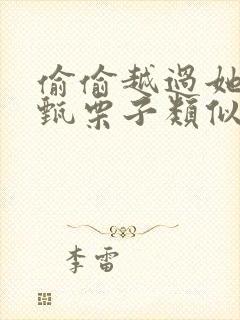 偷偷越過她
甄栗子類似
李雷